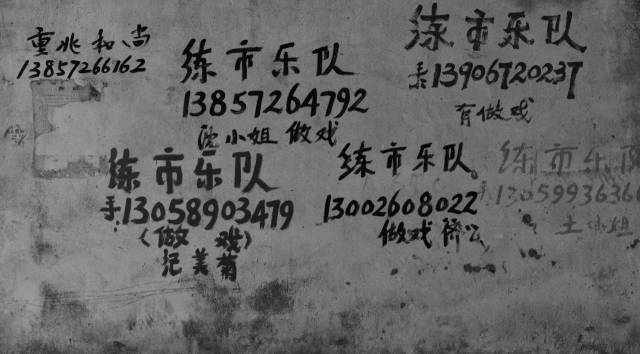 重兆和尚
13857266162
练市乐队
13857264792
沈小姐做戏
练市乐队
手13906720237
有做戏
练市乐队
手13058903479
(做戏)
纪美菊
练市乐队
13002608022
做戏 济公
练市乐队
手1305993636
土小姐